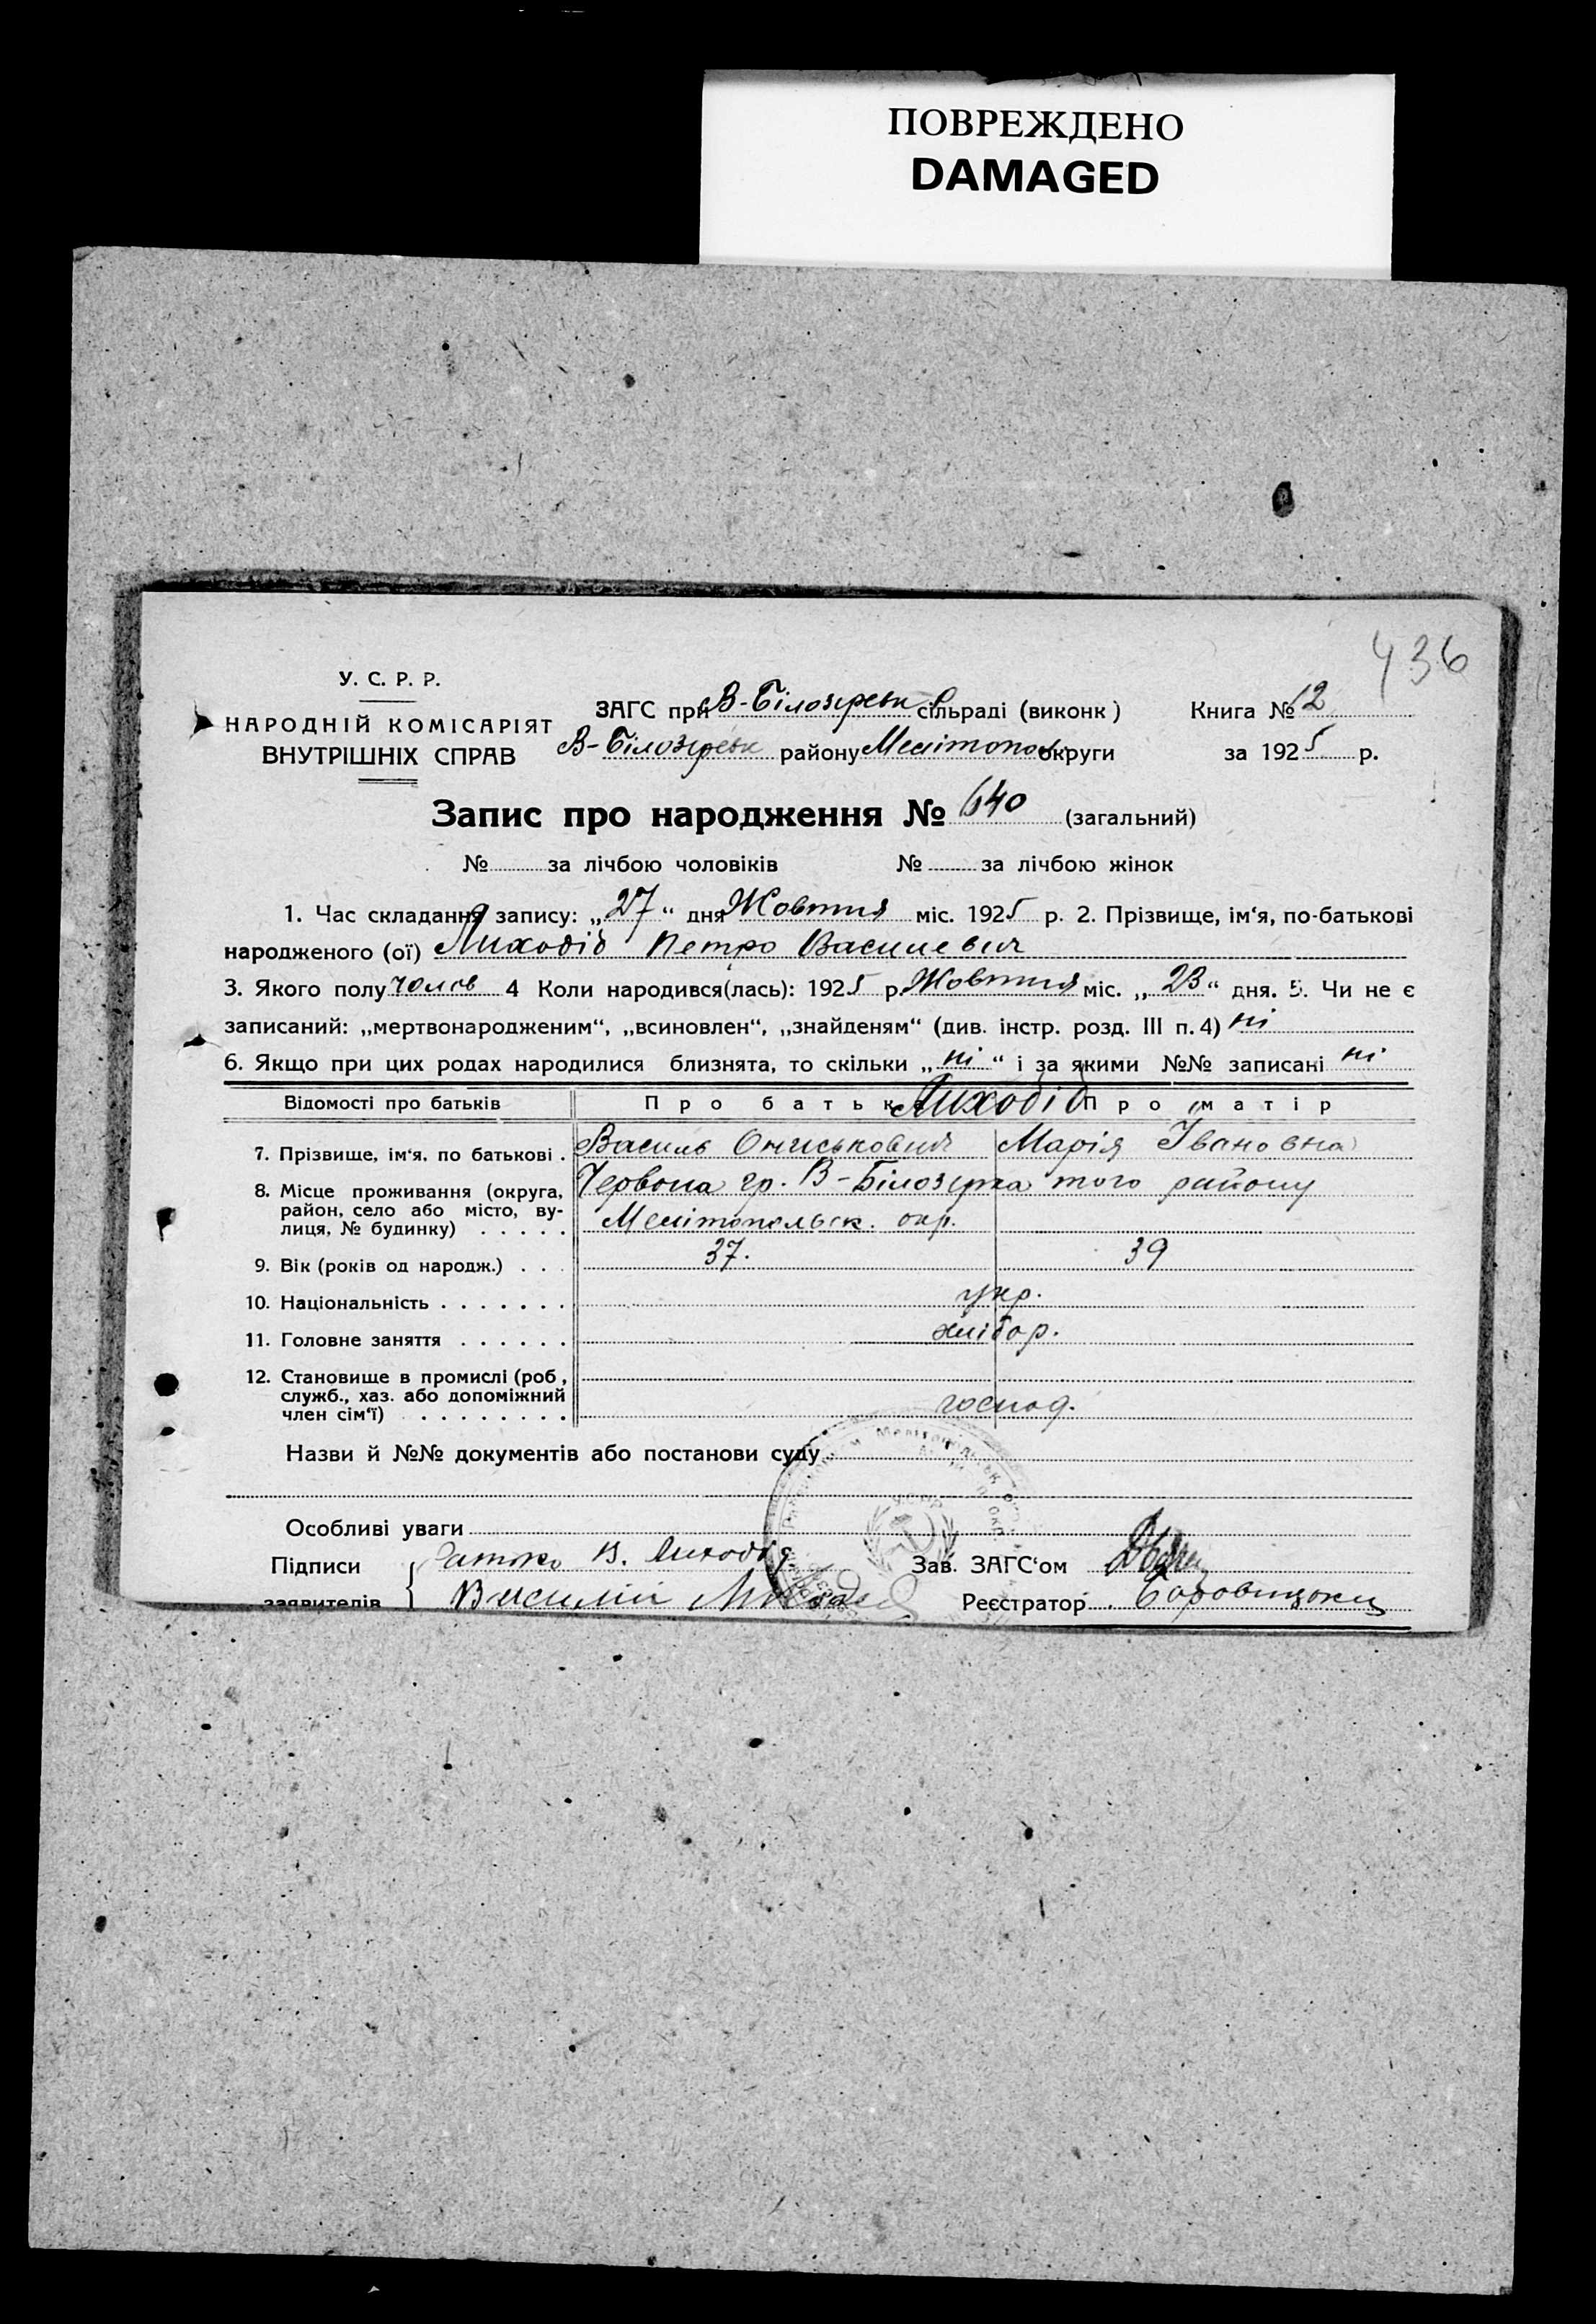 ПОВРЕЖДЕНО
DAMAGED
436
У. С. Р. Р.
НАРОДНІЙ КОМІСАРІЯТ
ВНУТРІШНІХ СПРАВ
ЗАГС при В-Білозерськ сільраді (виконк) Книга № 12
В-Білозерськ району Мелітополь округи за 1925 р.
Запис про народження № 640 (загальний)
№ за лічбою чоловіків № за лічбою жінок
1. Час складання запису: „27“ дня Жовтня міс. 1925 р. 2. Прізвище, ім‘я, по-батькові
народженого (ої) Лиходід Петро Василевич
3. Якого полу чолов 4 Коли народився(лась): 1925 р. Жовтня міс. „23“ дня. 5. Чи не є
записаний: „мертвонародженим“, „всиновлен“, „знайденям“ (див. інстр. розд. III п. 4) ні
6. Якщо при цих родах народилися близнята, то скільки „ні“ і за якими №№ записані ні
Відомості про батьків Про батька Лиходід Про матір
7. Прізвище, ім‘я, по батькові . Василь Ониськович Марія Івановна
8. Місце проживання (округа, Червона гр. В-Білозерка того району
район, село або місто, ву- Мелітопольськ. окр.
лиця, № будинку) . . . . .
9. Вік (років од народж.) . . . 37. 39
10. Національність . . . . . . . укр.
11. Головне заняття . . . . . . хлібор.
12. Становище в промислі (роб.,
служб., хаз. або допоміжний
член сім‘ї) . . . . . . . . господ.
Назви й №№ документів або постанови суду
Особливі уваги
Підписи Батько В. Лиходід Зав. ЗАГС‘ом
заявителів Василий Реєстратор